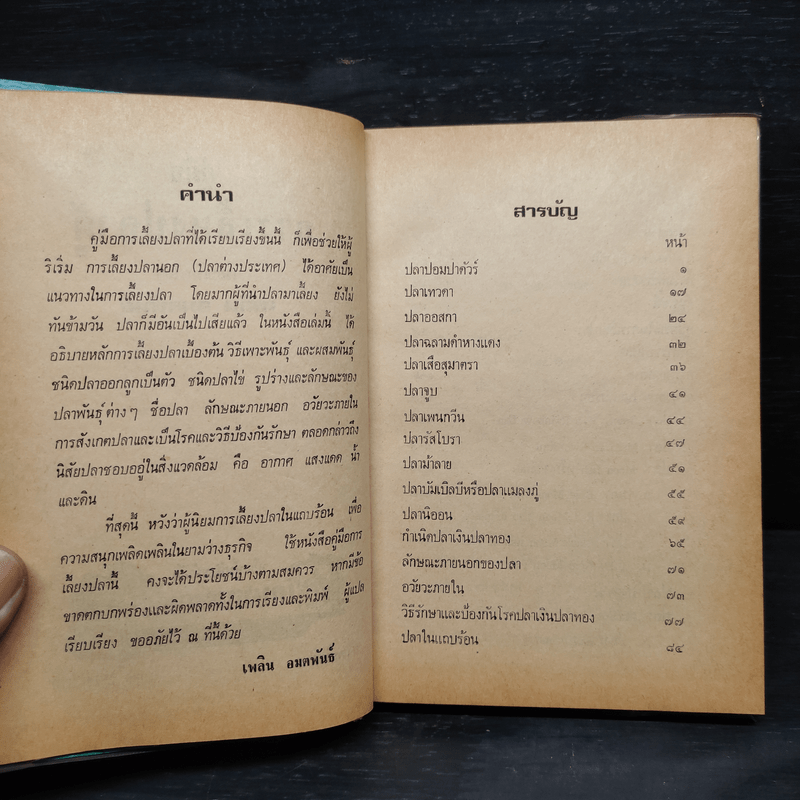 คำนำ
คู่มือการเลี้ยงปลาที่ได้เรียบเรียงขึ้นนี้ ก็เพื่อช่วยให้ผู้
ริเริ่ม การเลี้ยงปลานอก (ปลาต่างประเทศ) ได้อาศัยเป็น
แนวทางในการเลี้ยงปลา โดยมากผู้ที่นำปลามาเลี้ยง ยังไม่
ทันข้ามวัน ปลาก็มีอันเป็นไปเสียแล้ว ในหนังสือเล่มนี้ ได้
อธิบายหลักการเลี้ยงปลาเบื้องต้น วิธีเพาะพันธุ์ และผสมพันธุ์
ชนิดปลาออกลูกเป็นตัว ชนิดปลาไข่ รูปร่างและลักษณะของ
ปลาพันธุ์ต่างๆ ชื่อปลา ลักษณะภายนอก อวัยวะภายใน
การสังเกตปลาและเป็นโรคและวิธีป้องกันรักษา ตลอดกล่าวถึง
นิสัยปลาชอบออยู่ในสิ่งแวดล้อม คือ อากาศ แสงแดด น้ำ
และดิน
ที่สุดนี้ หวังว่าผู้นิยมการเลี้ยงปลาในแถบร้อน เพื่อ
ความสนุกเพลิดเพลินในยามว่างธุรกิจ ใช้หนังสือคู่มือการ
เลี้ยงปลานี้ คงจะได้ประโยชน์บ้างตามสมควร หากมีข้อ
ขาดตกบกพร่องและผิดพลาดทั้งในการเรียงและพิมพ์ ผู้แปล
เรียบเรียง ขออภัยไว้ ณ ที่นี้ด้วย
เพลิน อมตพันธ์
สารบัญ
หน้า
ปลาปอมปาดัวร์ ๑
ปลาเทวดา ๑๗
ปลาออสกา ๒๔
ปลาฉลามดำหางแดง ๓๒
ปลาเสือสุมาตรา ๓๖
ปลาจูบ ๔๑
ปลาเพนกวีน ๔๔
ปลารัสโบรา ๔๗
ปลาม้าลาย ๕๑
ปลาบัมเบิลบีหรือปลาแมลงภู่ ๕๕
ปลานิออน ๕๙
กำเนิดปลาเงินปลาทอง ๖๕
ลักษณะภายนอกของปลา ๗๑
อวัยวะภายใน ๗๓
วิธีรักษาและป้องกันโรคปลาเงินปลาทอง ๗๗
ปลาในแถบร้อน ๘๔